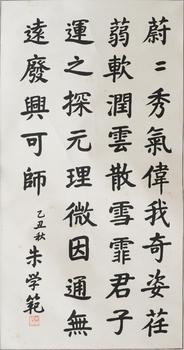 蔚〻秀氣偉我奇姿荏
蒻軟潤雲散雪霏君子
運之探元理微因通無
遠廢興可師
乙丑秋
朱学範